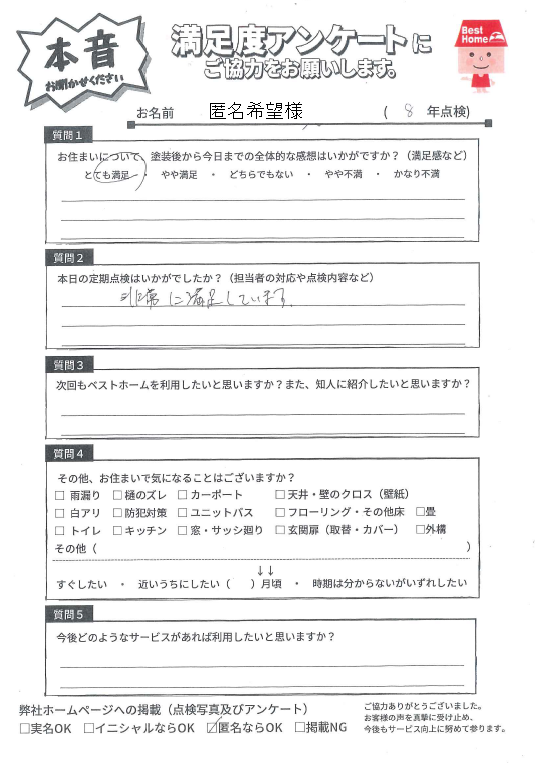 本音
お聞かせください
満足度アンケートに
ご協力をお願いします。
Best Home
お名前 匿名希望様 ( 8 年点検)
質問1
お住まいについて、塗装後から今日までの全体的な感想はいかがですか？（満足感など）
とても満足 ・ やや満足 ・ どちらでもない ・ やや不満 ・ かなり不満
質問2
本日の定期点検はいかがでしたか？（担当者の対応や点検内容など）
非常に満足しています。
質問3
次回もベストホームを利用したいと思いますか？また、知人に紹介したいと思いますか？
質問4
その他、お住まいで気になることはございますか？
□ 雨漏り □樋のズレ □ カーポート □ 天井・壁のクロス（壁紙）
□ 白アリ □防犯対策 □ ユニットバス □ フローリング・その他床 □畳
□ トイレ □キッチン □ 窓・サッシ廻り □ 玄関扉（取替・カバー） □外構
その他（ ）
↓↓
すぐしたい ・ 近いうちにしたい（ ）月頃 ・ 時期は分からないがいずれしたい
質問5
今後どのようなサービスがあれば利用したいと思いますか？
弊社ホームページへの掲載（点検写真及びアンケート）
□実名OK □イニシャルならOK ☑匿名ならOK □掲載NG
ご協力ありがとうございました。
お客様の声を真摯に受け止め、
今後もサービス向上に努めて参ります。